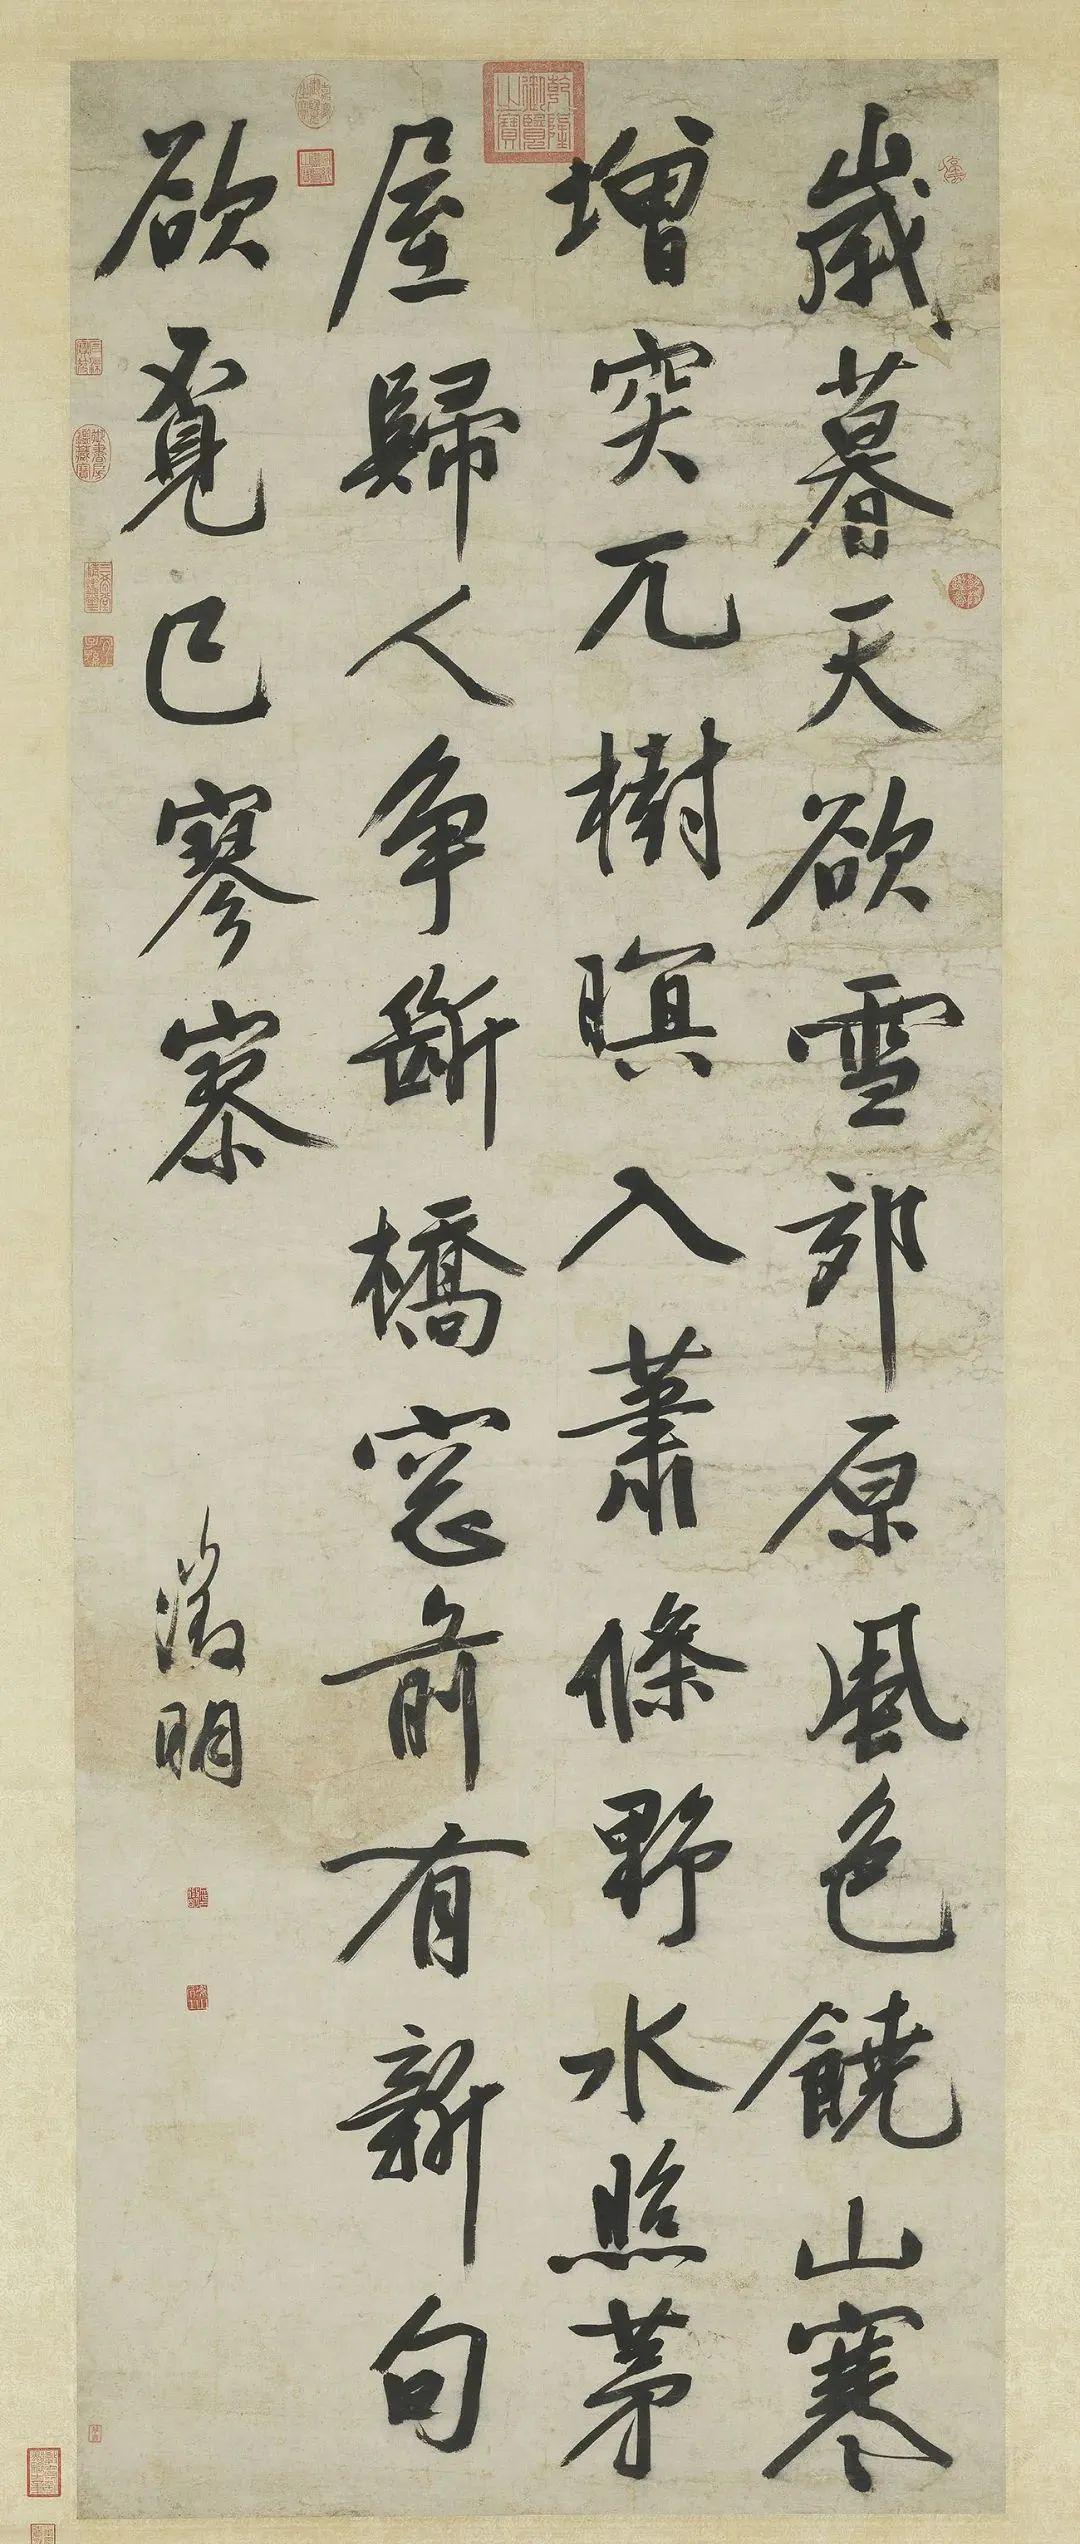 歲暮天欲雪郊原風色饒山寒
增突兀樹暝入蕭條野水照茅
屋歸人爭斷橋窓前有新句
欲覓已寥寥
徵明
乾隆御覽之寶